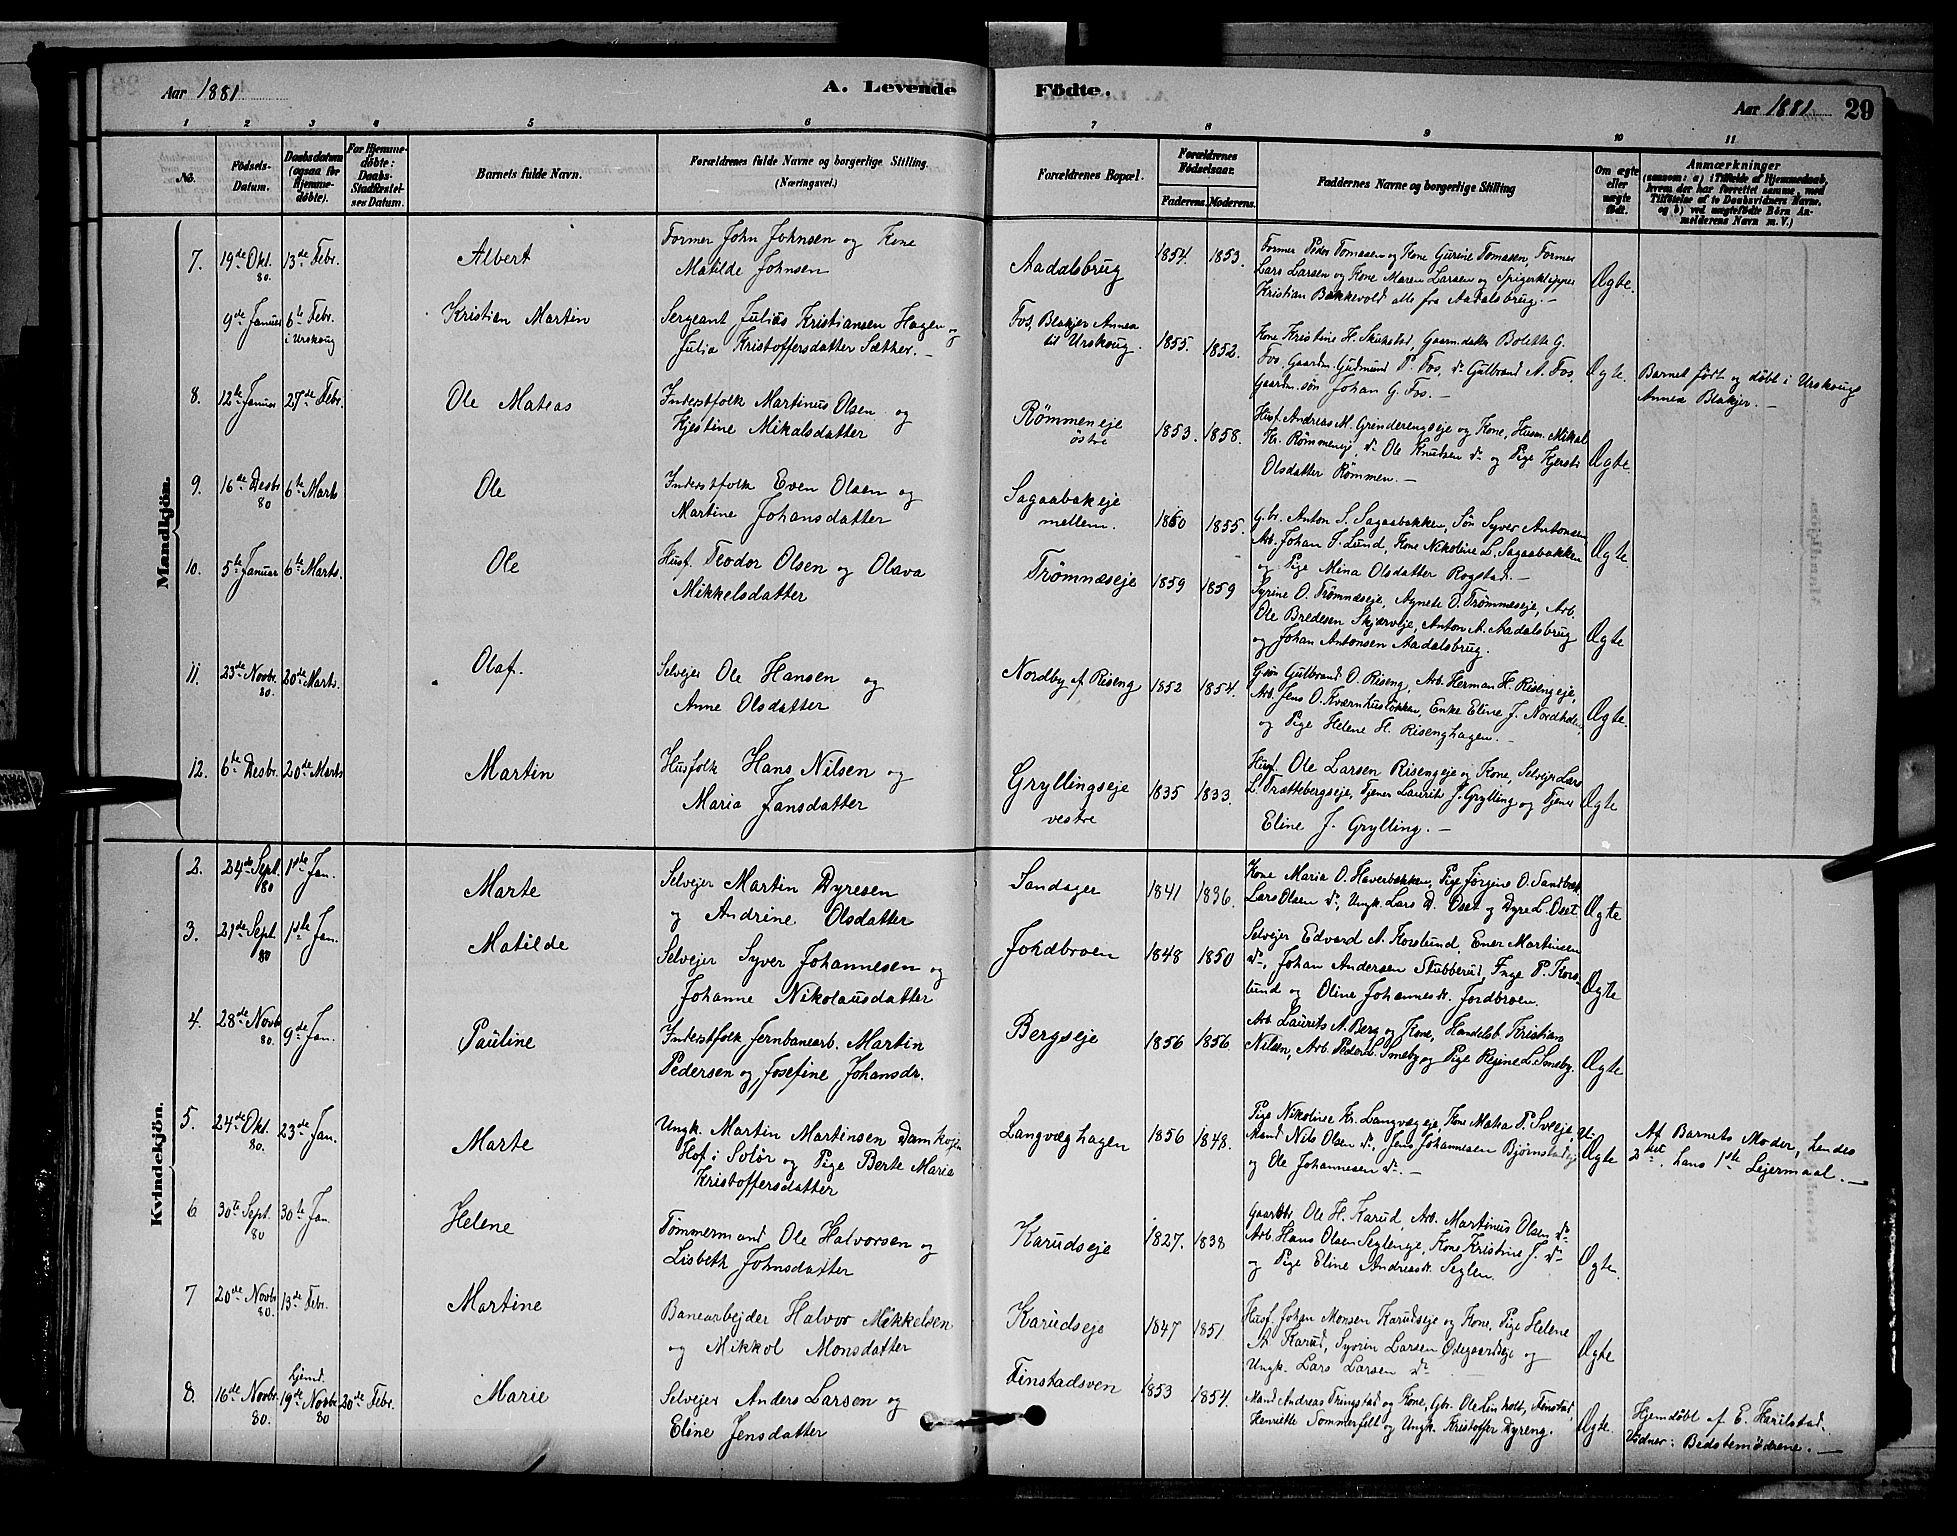 Aar 1881
A. Levende Födte.
Aar 1881 29
1 2 3 4 5 6 7 8 9 10 11
No.
Födsels-Datum.
Daabsdatum (ogsaa for Hjemmedöbte).
For Hjemmedöbte: Daabs-Stadfæstelses Datum.
Barnets fulde Navn.
Forældrenes fulde Navne og borgerlige Stilling. (Næringsvei.)
Forældrenes Bopæl.
Forældrenes Födselsaar.
Faderens. Moderens.
Faddernes Navne og borgerlige Stilling
Om ægte eller uægte födt.
Anmærkninger
(saasom: a) i Tilfælde af Hjemmedaab, hvem der har forrettet samme, med Tilföielse af to Daabsvidners Navne. og b) ved uægtefödte Börn Anmelderens Navn m. V.)
Mandkjön.
7. 19de Okt. 80. 13de Febr. Albert
Former John Johnsen og Kone
Matilde Johnsen
Aadalsbrug 1854. 1853.
Former Peder Tomasen og Kone Gurine Tomasen Former
Lars Larsen og Kone Maren Larsen og Spigerklipper
Kristian Bakkevold alle fra Aadalsbrug. —
Ægte.
9de Januar 6te Febr. i Urskoug Kristian Martin
Sergeant Julius Kristiansen Hagen og
Julia Kristoffersdatter Sæther. —
Fos, Blakjer Annex
til Urskoug. 1855. 1852.
Kone Kristine H. Skukstad, Gaarm.datter Bolette G.
Fos, Gaardm. Gudmund P. Fos, do Gulbrand A. Fos,
Gaardm.søn Johan G. Fos. —
Ægte.
Barnet født og døbt i Urskougs
Annex Blakjer. —
8. 12te Januar 27de Febr. Ole Matias
Inderstfolk Martinus Olsen og
Kjestine Mikalsdatter
Rømmeneje
østre 1853. 1858.
Husf. Andreas M. Grinderengseje og Kone, Husm. Mikal
Kr. Rømmenej, do Ole Knutsen do og Pige Kjersti
Olsdatter Rømmen. —
Ægte.
9. 16de Desbr 80 6te Marts Ole
Inderstfolk Even Olsen og
Martine Johansdatter
Sagaabakeje
mellem. 1860 1855.
G.br. Anton S. Sagaabakken, Søn Syver Antonsen
Arb. Johan S. Lund, Kone Nikoline L. Sagaabakken
og Pige Mina Olsdatter Rogstad. —
Ægte.
10. 5te Januar 6te Marts. Ole
Husf. Teodor Olsen og Olava
Mikkelsdatter
Trømnæseje 1859 1859
Syrine O. Trømnæseje, Agnete O. Trømmeseje, Arb.
Ole Bredesen Skjærveje, Anton A. Aadalsbrug
og Johan Antonsen Aadalsbrug.
Ægte
11. 23de Novbr. 80. 20de Marts. Olaf.
Selvejer Ole Hansen og
Anne Olsdatter
Nordby af Riseng 1852 1854.
G.søn Gulbrand O. Riseng, Arb. Herman H. Risengeje,
Arb. Jens O. Kværnhusløkken, Enke Eline J.
og Pige Helene H. Risenghagen. —
Ægte.
12. 6te Desbr. 20de Marts Martin
Husfolk Hans Nilsen og
Maria Jansdatter
Gryllingseje
vestre 1835 1833.
Husf. Ole Larsen Risengeje og Kone, Selvejer Lars
L. Trættebergseje, Tjener Laurits J. Grylling og Tjener
Eline J. Grylling. —
Ægte
Kvindekjön.
2. 24de Sept. 80 1ste Jan. Marte
Selvejer Martin Dyresen
og Andrine Olsdatter
Sandager 1841 1836.
Kone Maria O. Haverbakken, Pige Jørgine O. Sandbæk
Lars Olsen do, Ungk. Lars D. Oset og Dyre L. Oset.
Ægte
3. 21de Sept. 80 1ste Jan. Matilde
Selvejer Syver Johannesen og
Johanne Nikolausdatter
Jordbroen 1848 1850
Selvejer Edvard A. Korslund, Ener Martinsen
do, Johan Andersen Stubberud, Inge P. Kors-
lund og Oline Johannesdr. Jordbroen.
Ægte
4. 28de Novbr 80. 9de Jan. Pauline
Inderstfolk Jernbanearb. Martin
Pedersen og Josefine Johansdr.
Bergseje 1856 1856
Arb. Laurits A. Berg og Kone, Handelsb. Kristian
Nilsen, Arb. Peder L. Smeby og Pige Regine L. Smeby.
Ægte
5. 24de Okt. 80. 23de Jan. Marte
Ungk. Martin Martinsen
Hof i Solør og Pige Berte Maria
Kristoffersdatter
Langvæghagen 1856 1848.
Pige Nikoline Kr. Langvægeje, Kone Matea P. Sveeje,
Mand Nils Olsen do, Jens Johannesen
og Ole Johannesen do —
U-
Ægte
Af Barnets Moder, hendes
3det, hans 1ste Lejermaal. —
6 30te Sept. 80 30te Jan. Helene
Tømmermand Ole Halvorsen og
Lisbeth Johnsdatter
Karudseje 1827. 1838
Gaardbr Ole H. Karud, Arb. Martinus Olsen do
Arb. Hans Olsen Seglenge, Kone Kristine J. do
og Pige Eline Andreasdr. Seglen.
Ægte.
7 20de Novbr 80. 13de Febr. Martine
Banearbejder Halvor Mikkelsen
og Mikkol Monsdatter
Karudseje 1847 1851.
Husf. Johan Monsen Karudseje og Kone, Pige Helene
A. Karud, Syvrin Larsen Ødegaardseje og
Ungk. Lars Larsen do
Ægte
8. 16de Novbr. 80. hjemd. 19de Novbr. 80 20de Febr. Marie
Selvejer Anders Larsen og
Eline Jensdatter
Finstadsven 1853 1854.
Mand Andreas Tringstad og Kone, Gbr. Ole Linholt, Finstad,
Henriette Sommerfelt og Ungk. Kristoffer Dyreng.
Ægte.
Hjemdøbt af E. Harilstad.
Vidner: Bedstemødrene. —